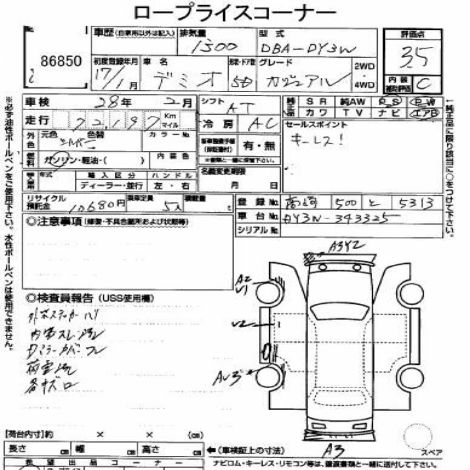 ロープライスコーナー
86850
車歴 (自家用以外は記入) 排気量 型式 評価点
1300 DBA-DY3W 3.5
初度登録年月 車名 ドア・形状 グレード 2WD 4WD 内装 補助評価
17/1月 デミオ 5D カジュアル C
車検 28年 2月 シフト AT
走行 72,197 Km マイル 冷房 AC
SR 純AW PS PW
カワ TV ナビ エアB
外色 元色 色替
シルバー
セールスポイント
キーレス!
燃料 ガソリン・軽油・( ) 内色
有・無
輸入区分 ハンドル
ディーラー・並行 左・右
名義変更期限
月 日
リサイクル預託金 10680円 乗車定員 5人 積載量
登録No 高崎 500 と 5313
車台No DY3W-343325
シリアルNo
◎注意事項 (修復・不具合箇所および状況)
※必ず油性ボールペンをご使用下さい。水性ボールペンは使用不可。
A3Y2
A2
V1
V2
AU3
A3
◎検査員報告 (USS使用欄)
内装スレ 汚
荷室 汚
各キズ
【荷台内寸】約 × ×
長さ cm 幅 cm 高さ cm
←(車検証上の寸法) スペア
ナビロム・キーレス・リモコン等は、譲渡書類と一緒に送付して下さい。
希望出品コーナー